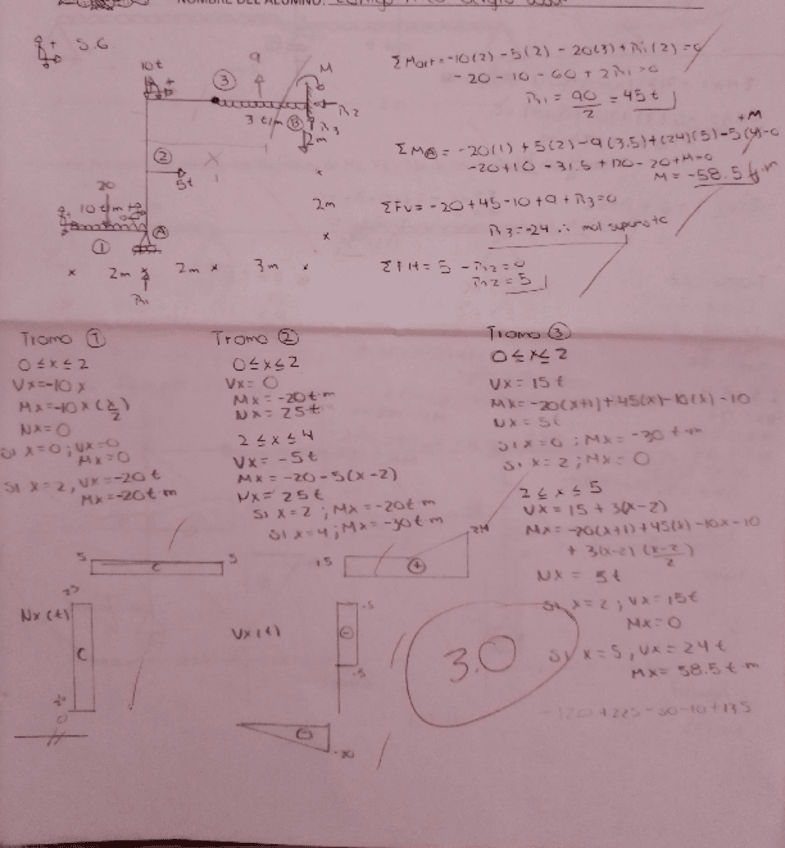 NOMBRE DEL ALUMNO:
S.G.
10t
③
9
M
R2
3 t/m Ⓑ
R3
2m
②
5t
20
10 t/m
Ⓐ
①
2m
2m
2m
3m
R1
ΣMart=-10(2)-5(2)-20(3)+R1(2)=0
-20-10-60+2R1=0
R1=90/2=45t
ΣMA=-20(1)+5(2)-9(3.5)+(24)(5)-5(4)+M=0
-20+10-31.5+120-20+M=0
M=-58.5 t·m
ΣFv=-20+45-10+9+R3=0
R3=-24 ∴ mal supuesto
ΣFH=5-R2=0
R2=5
Tramo ①
0≤x≤2
Vx=-10x
Mx=-10x(x/2)
Nx=0
Si x=0; Vx=0
Mx=0
Si x=2, Vx=-20t
Mx=-20t·m
Tramo ②
0≤x≤2
Vx=0
Mx=-20t·m
Nx=25t
2≤x≤4
Vx=-5t
Mx=-20-5(x-2)
Nx=25t
Si x=2; Mx=-20t·m
Si x=4; Mx=-30t·m
Tramo ③
0≤x≤2
Vx=15t
Mx=-20(x+1)+45(x)-10(x)-10
Nx=5t
Si x=0; Mx=-30t·m
Si x=2; Mx=0
2≤x≤5
Vx=15+3(x-2)
Mx=-20(x+1)+45(x)-10x-10
+3(x-2)(x-2/2)
Nx=5t
Si x=2; Vx=15t
Mx=0
Si x=5, Vx=24t
Mx=58.5t·m
-120+225-50-10+13.5
5
C
5
15
+
24
Nx(t)
C
Vx(t)
-5
-
-5
3.0
-